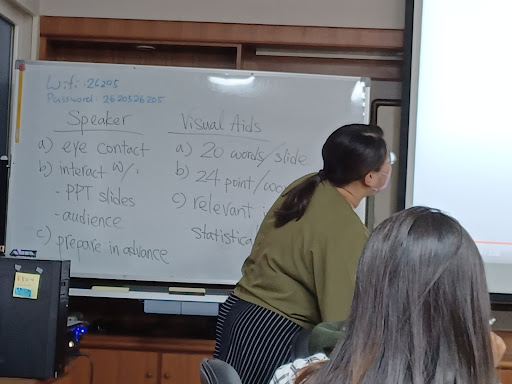 Wifi: 26205
Password: 2620526205
Speaker
a) eye contact
b) interact w/.
- PPT slides
- audience
c) prepare in advance
Visual Aids
a) 20 words/slide
b) 24 point/
c) relevant